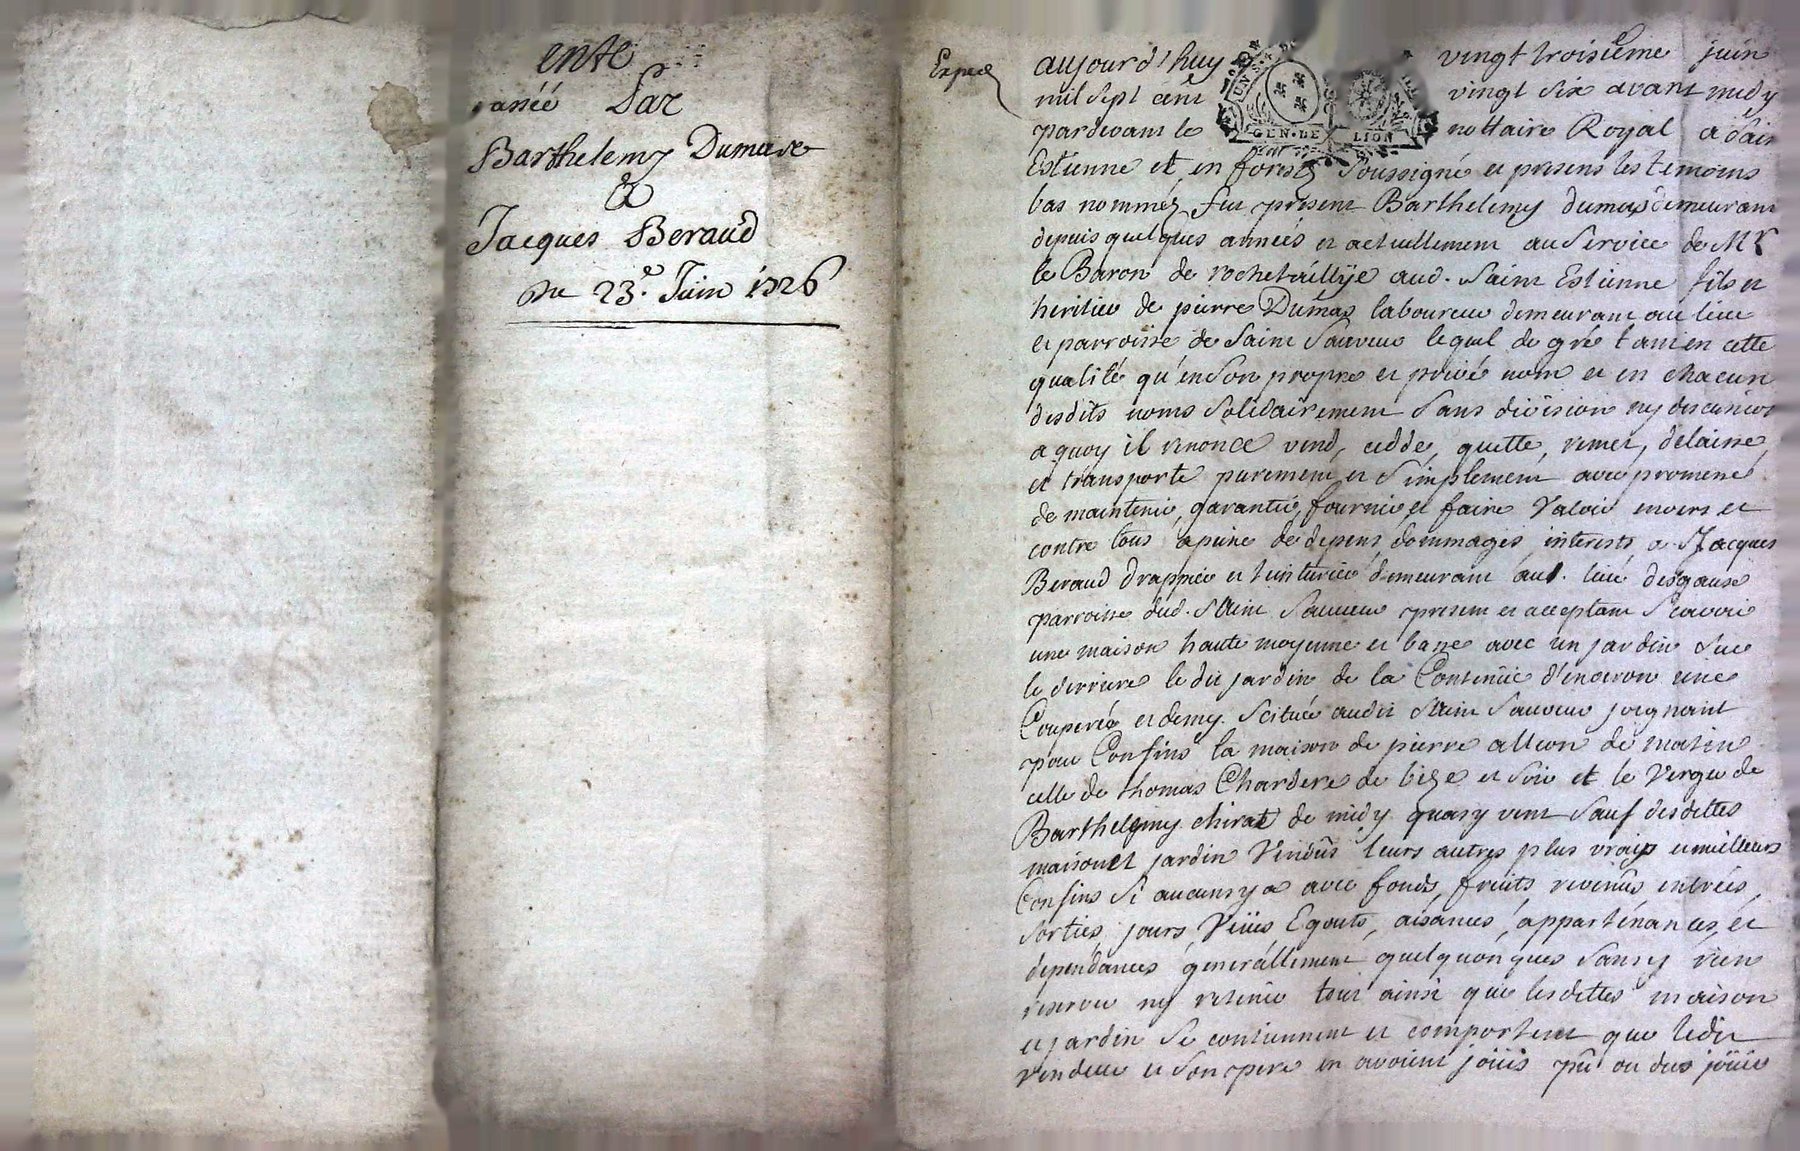 ente
passée Par
Barthelemy Dumas
a
Jacques Beraud
Du 23.e Juin 1726
Exped
aujourd'huy vingt troisieme juin
mil sept cent vingt six avant midy
pardevant le nottaire Royal a Saint
Estienne et en forestz soussigné et presens les temoins
bas nommez fut present Barthelemy dumas demeurant
depuis quelques années et actuellement au service de Mr
le Baron de rochetaillye aud. Saint Estienne fils et
heritier de pierre Dumas laboureur demeurant au lieu
et parroisse de Saint Sauveur lequel de gré tant en cette
qualité qu'en son propre et privé nom et en chacun
desdits noms solidairement sans division ny discution
a quoy il renonce vend, cedde, quitte, remet, delaisse,
et transporte purement et simplement avec promesse
de maintenir, garantir, fournir et faire valoir envers et
contre tous apeine de depens, dommages, interests, a Jacques
Beraud drappier et teinturier demeurant au lieu
parroisse dud. Saint Sauveur present et acceptant scavoir
une maison haute moyenne et basse avec un jardin sur
le derriere le dit jardin de la Contenüe d'environ une
Couperée et demy. scitüée audit Saint Sauveur joignant
pour Confins la maison de pierre alleon de matin
celle de thomas Chardere de bize et soir et le verger de
Barthelemy chirat de midy quasy vent sauf desdittes
maison et jardin vendus leurs autres plus vrays et meilleurs
Confins si aucuns y a avec fonds, fruits, revenus, entrées,
sorties, jours, veües Egouts, aisances, appartenances, et
dependances generallement quelquonques sans y rien
reserver ny retenir tout ainsi que lesdittes maison
et jardin se contiennent et comportent que ledit
vendeur et son pere en avoient joüis pü ou dus joüir
GEN·DE LION